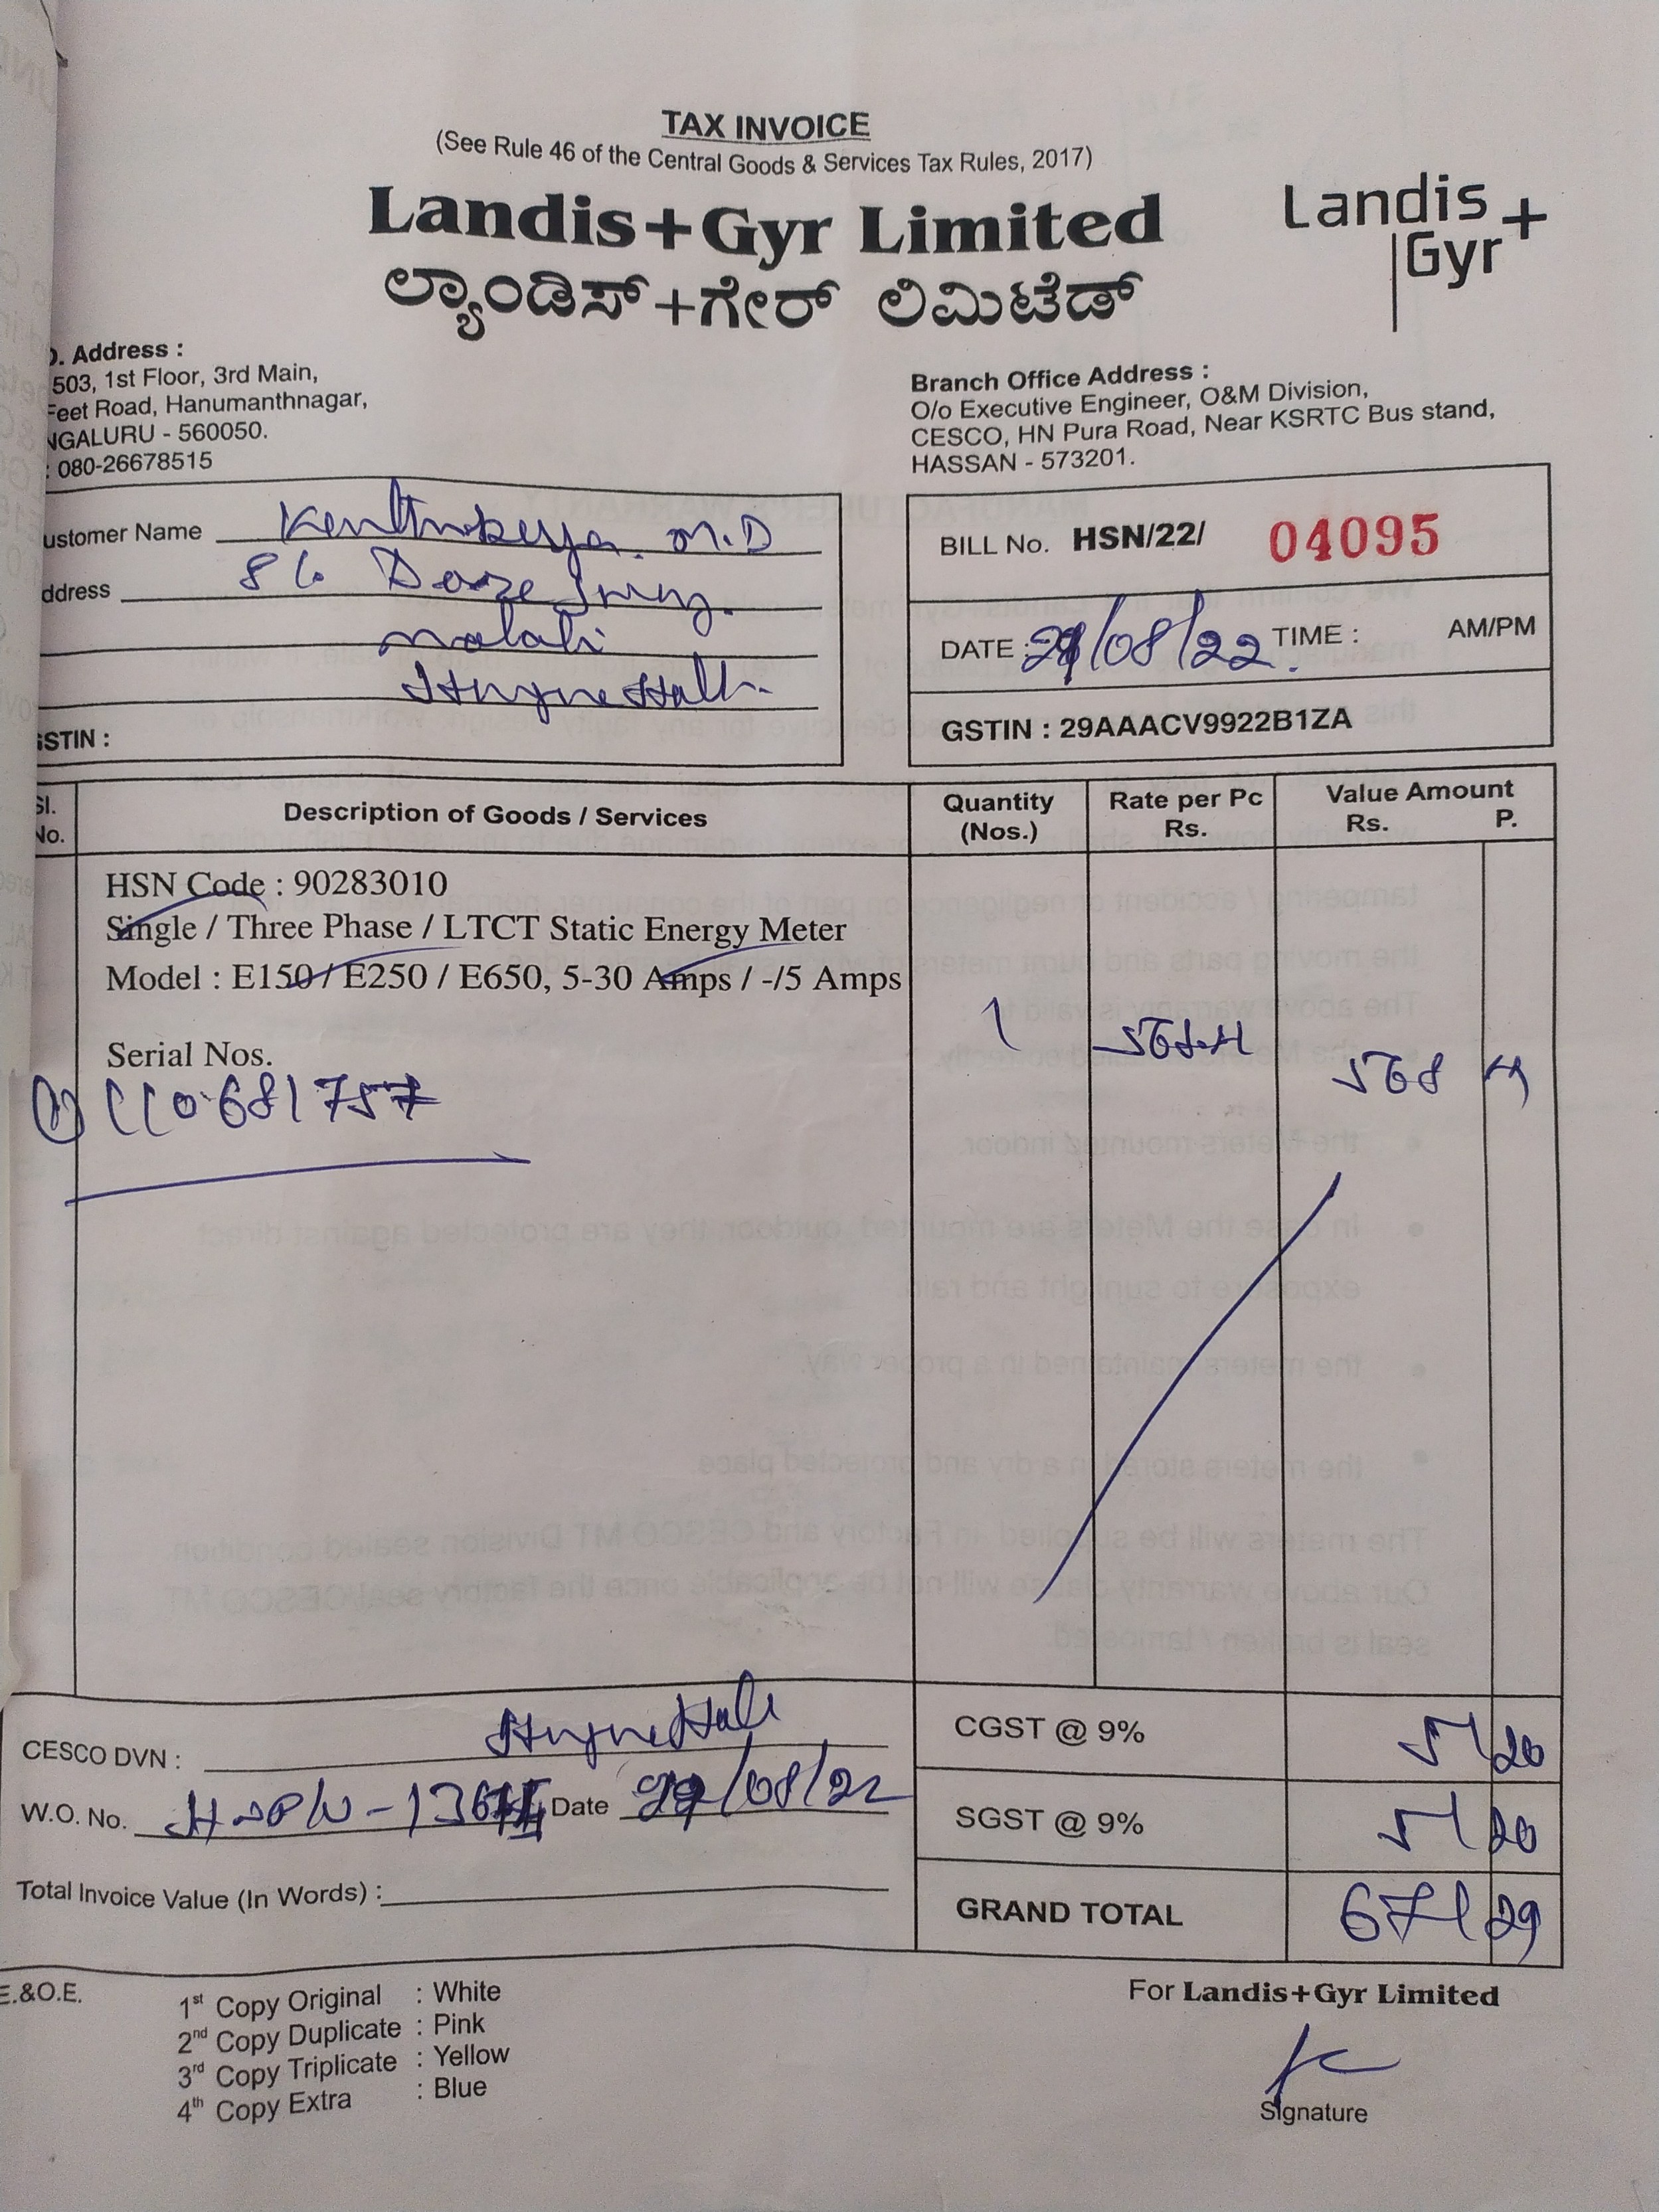 TAX INVOICE
(See Rule 46 of the Central Goods & Services Tax Rules, 2017)
Landis+Gyr Limited
ಲ್ಯಾಂಡಿಸ್+ಗೇರ್ ಲಿಮಿಟೆಡ್
Landis+
Gyr
. Address :
503, 1st Floor, 3rd Main,
Feet Road, Hanumanthnagar,
NGALURU - 560050.
: 080-26678515
Branch Office Address :
O/o Executive Engineer, O&M Division,
CESCO, HN Pura Road, Near KSRTC Bus stand,
HASSAN - 573201.
ustomer Name M.D
ddress
GSTIN :
BILL No. HSN/22/ 04095
DATE : /08/22 TIME : AM/PM
GSTIN : 29AAACV9922B1ZA
Sl. No.
Description of Goods / Services
Quantity (Nos.)
Rate per Pc Rs.
Value Amount Rs. P.
HSN Code : 90283010
Single / Three Phase / LTCT Static Energy Meter
Model : E150 / E250 / E650, 5-30 Amps / -/5 Amps
1
568
Serial Nos.
CESCO DVN :
W.O. No. Date /08/22
Total Invoice Value (In Words) :
CGST @ 9% 51 20
SGST @ 9% 51 20
GRAND TOTAL 671 29
E.&O.E.
1st Copy Original : White
2nd Copy Duplicate : Pink
3rd Copy Triplicate : Yellow
4th Copy Extra : Blue
For Landis+Gyr Limited
Signature